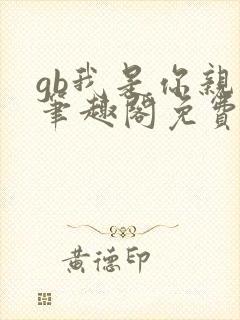 gb我是你親
筆趣閣免費
黄德印